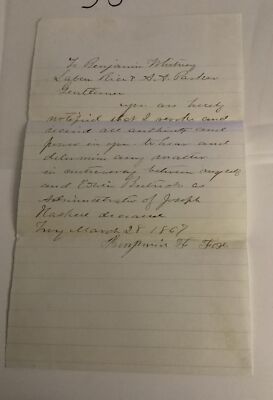 To Benjamin Whitney
Rice & A. A. Parker
Gentlemen
you are hereby
notified that I revoke and
rescind all authority and
power in you to hear and
determine any matter
in controversy between myself
and Edwin as
administrator of Joseph
Haskell deceased
Troy March 28 1867
Benjamin H. Fox